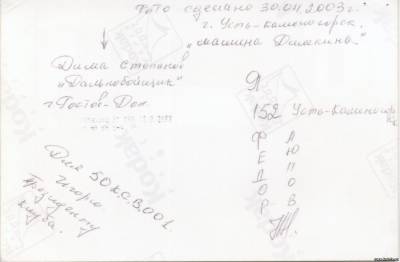 Фото сделано 30.04.2003г.
г. Усть-каменогорск,
"машина Димакина."
↓
Дима Степанов
"Дальнобойщик"
г. Ростов-Дон
Я
152 Усть-Каменого
Ф А
Е Ю
Д П
О О
Р В
Для 50.К.С.В.001.
Игорю
Президенту
клуба.
Kodak